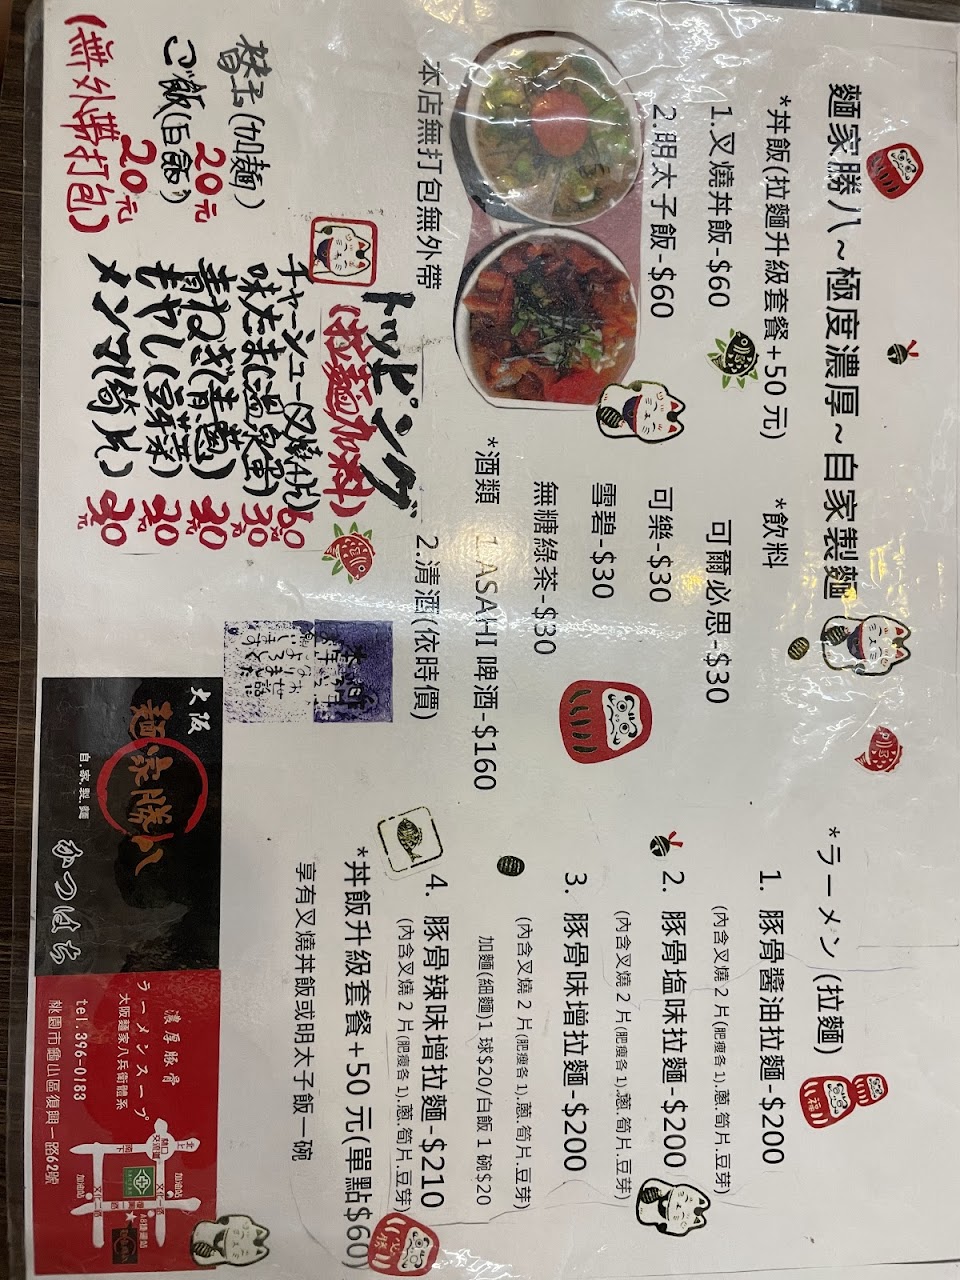 麵家勝八~極度濃厚~自家製麵
*丼飯(拉麵升級套餐+50 元)
1.叉燒丼飯-$60
2.明太子飯-$60
本店無打包無外帶
*飲料
可爾必思-$30
可樂-$30
雪碧-$30
無糖綠茶-$30
*酒類
1.ASAHI 啤酒-$160
2.清酒(依時價)
替玉(加麺)
20元
ご飯(白飯)
20元
(無外帶打包)
トッピング
(拉麵加料)
チャーシュー(叉燒4片) 60元
味たま(温泉蛋) 30元
青ねぎ(青蔥) 30元
もやし(豆菜) 20元
メンマ(筍片) 30元
*ラーメン (拉麵)
1. 豚骨醬油拉麵-$200
(內含叉燒 2 片(肥瘦各 1).蔥.筍片.豆芽)
2. 豚骨塩味拉麵-$200
(內含叉燒 2 片(肥瘦各 1).蔥.筍片.豆芽)
3. 豚骨味增拉麵-$200
(內含叉燒 2 片(肥瘦各 1).蔥.筍片.豆芽)
加麵(細麵)1 球$20/白飯 1 碗$20
4. 豚骨辣味增拉麵-$210
(內含叉燒 2 片(肥瘦各 1).蔥.筍片.豆芽)
*丼飯升級套餐+50 元(單點$60)
享有叉燒丼飯或明太子飯一碗
大阪
麺家勝八
自.家.製.麵
かつはち
濃厚豚骨
ラーメンスープ
大阪麵家八兵衛體系
tel.396-0183
桃園市龜山區復興一路62號
北上
南下
林口
交流道
加油站
加油站
文化一路
文化二路
復興一路
A8捷運站
福